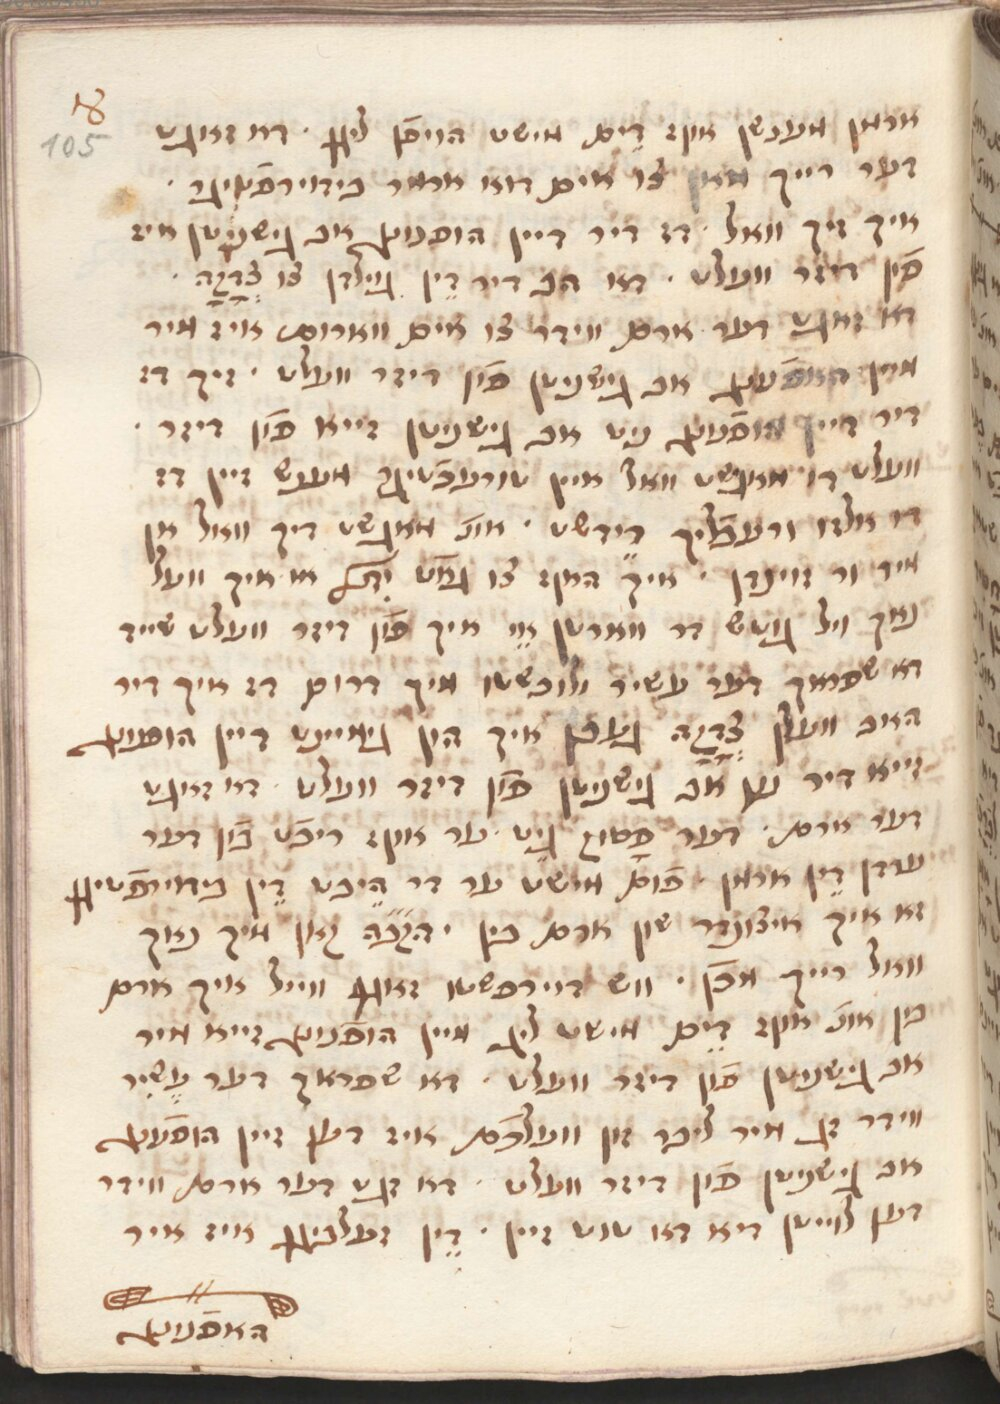 105
ארמן מענשן אונ׳ דימ מישט הויפן ליגן · דא זאגט
דער רייך מאן צו אים דוא ארמר בידוירפטיגר ·
איך זיך וואל · דז דיר דיין הופנונג אב גישניטן איז
פֿון דיזר וועלט · דא הב דיר דֵין גוילדן צו צדקה ·
דא זאגט דער ארם ווידר צו אים ווארום איז מיר
מיין האפנונג אב גישניטן פֿון דיזר וועלט · זיך דז
דיר דיין הופנונג ניט אב גישניטן זייא פֿון דיזר ·
וועלט דו מאגשט וואל איין טורעכטיגר מענש זיין דז
דיך וואל אן
מיר
נאך וויל גוטש דר ווארטן איך פֿון דיזר וועלט שייד
דא שפראך דער עשיר דרום דז איך דיר
האב וועלן צדקה געבן איך הין גימיינט דיין הופנונג
זייא דיר אב גישניטן פֿון דיזר וועלט · דא זאגט
דער ארם · דער פסוק גיט ער אונ׳ ריכט פֿון דער
ערדן דֵין ארמן · פֿום מישט ער דר היכט דֵין בידוירפטיגן
דא איך איצונדר שון ארם בין · קאן איך נאך
וואל רייך · וש דוירפשטו זאגן ווייל איך ארם
בין אונ׳ דים מישט ליג מיין הופנונג זייא מיר
אב גישניטן פֿון דיזר וועלט · דא שפראך דער עשיר
ווידר זג מיר ליבר וועלכם איז דען זיין הופנונג
אב גישניטן פֿון דיזר וועלט · דא זגט דער ארם ווידר
דען לוייטן דיא דא טוט זיין · דֵין זעלביגן איז איר
האפנונג